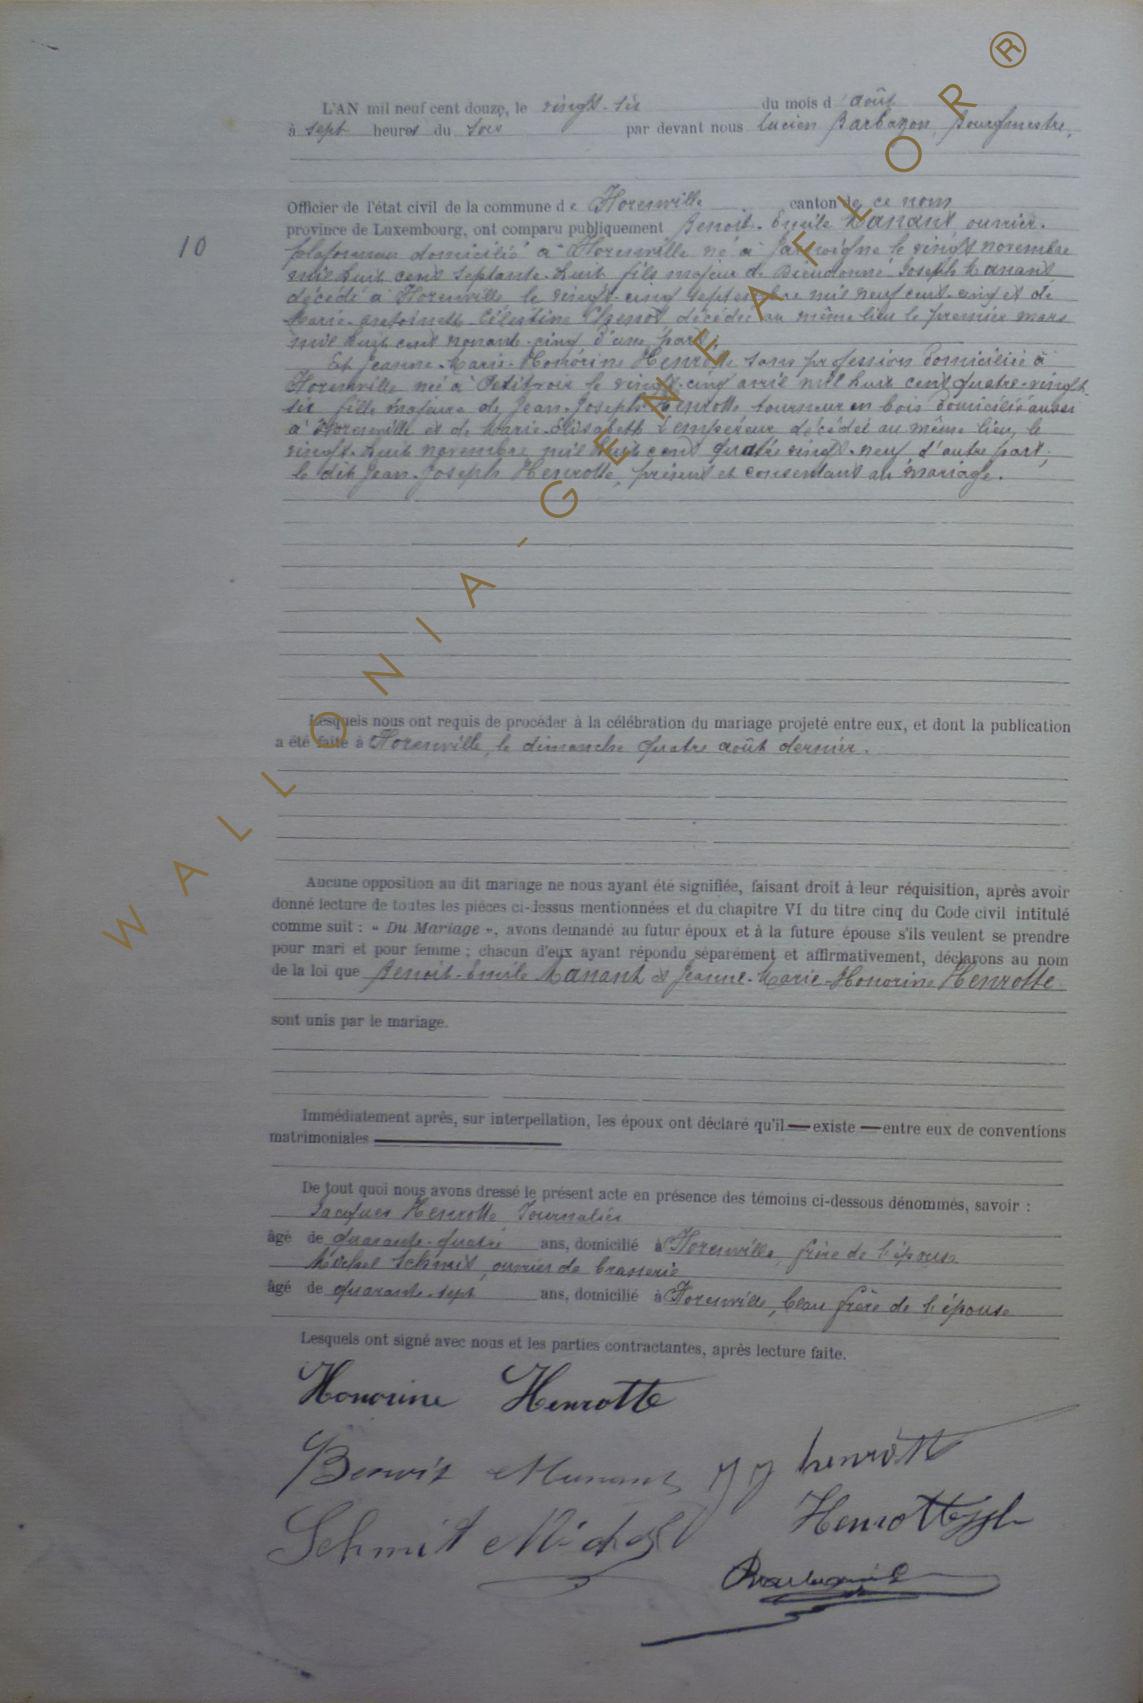 L'AN mil neuf cent douze, le vingt-six du mois d'août
à sept heures du soir par devant nous Lucien Barbazon, Bourgmestre,
Officier de l'état civil de la commune de Florenville canton de ce nom
province de Luxembourg, ont comparu publiquement Benoit-Emile Manant, ouvrier-
10
plafonneur domicilié à Florenville né à Jamoigne le vingt novembre
mil huit cent septante-huit fils majeur de Dieudonné Joseph Manant
décédé à Florenville le vingt-cinq septembre mil neuf cent-cinq et de
Marie-Antoinette Célestine décédée au même lieu le premier mars
mil huit cent nonante-cinq d'une part;
Et Jeanne-Marie-Honorine Henrotte sans profession domiciliée à
Florenville née à Petitvoir le vingt-cinq avril mil huit cent quatre-vingt-
six fille majeure de Jean-Joseph Henrotte tourneur en bois domicilié aussi
à Florenville et de Marie-Elisabeth Lempereur décédée au même lieu, le
vingt-huit novembre mil huit cent quatre vingt-neuf, d'autre part;
le dit Jean-Joseph Henrotte, présent et consentant au mariage.
Lesquels nous ont requis de procéder à la célébration du mariage projeté entre eux, et dont la publication
a été faite à Florenville, le dimanche quatre août dernier.
Aucune opposition au dit mariage ne nous ayant été signifiée, faisant droit à leur réquisition, après avoir
donné lecture de toutes les pièces ci-dessus mentionnées et du chapitre VI du titre cinq du Code civil intitulé
comme suit : « Du Mariage », avons demandé au futur époux et à la future épouse s'ils veulent se prendre
pour mari et pour femme ; chacun d'eux ayant répondu séparément et affirmativement, déclarons au nom
de la loi que Benoit-Emile Manant et Jeanne-Marie-Honorine Henrotte
sont unis par le mariage.
Immédiatement après, sur interpellation, les époux ont déclaré qu'il — existe — entre eux de conventions
matrimoniales
De tout quoi nous avons dressé le présent acte en présence des témoins ci-dessous dénommés, savoir :
Jacques Henrotte, Journalier
âgé de quarante-quatre ans, domicilié à Florenville, frère de l'épouse
Michel Schmit, ouvrier de brasserie
âgé de quarante-sept ans, domicilié à Florenville, beau frère de l'épouse
Lesquels ont signé avec nous et les parties contractantes, après lecture faite.
Honorine Henrotte
Benoit Manant J J henrotte
Schmit Michel Henrotte
WALLONIA-GENEAFLOR®